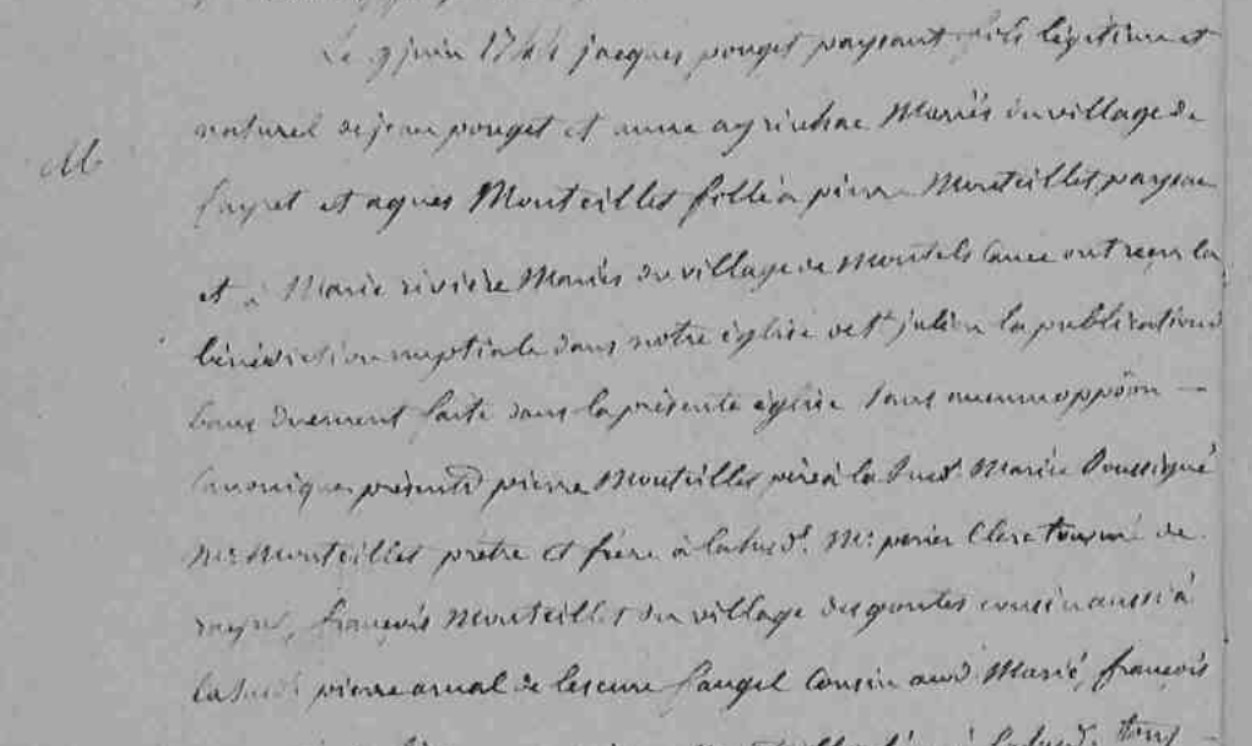 Le 9 juin 1744 jacques pouget paysant fils légitime et
naturel de jean pouget et anne agrinhac Mariés du village de
fayet et agnes Monteillet fille à pierre Monteillet paysan
et à Marie rivière Mariés du village de Montels ont reçu la
bénédiction nuptiale dans notre église de St julien la publication
bans duement faite dans la présente église sans aucun oppôon —
Canonique présents pierre Monteillet père à la susd. Mariée soussigné
Mr Monteillet prêtre et frère à la susd. Mr perier Clerc tonsuré de
françois Monteillet du village des cousin aussi à
la susd. pierre arnal de lescure cousin aud. Marié, françois
à la susd. tous